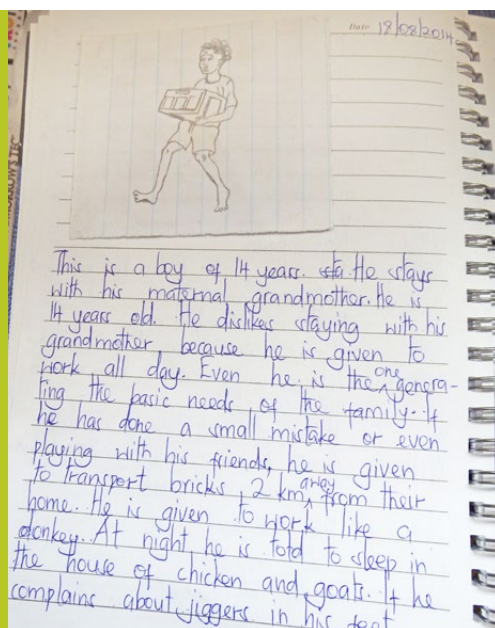 Date 18/08/2014
This is a boy of 14 years. He stays
with his maternal grandmother. He is
14 years old. He dislikes staying with his
grandmother because he is given to
work all day. Even he is the one genera-
ting the basic needs of the family. If
he has done a small mistake or even
playing with his friends, he is given
to transport bricks 2 km away from their
home. He is given to work like a
donkey. At night he is told to sleep in
the house of chicken and goats. If he
complains about jiggers in his feet